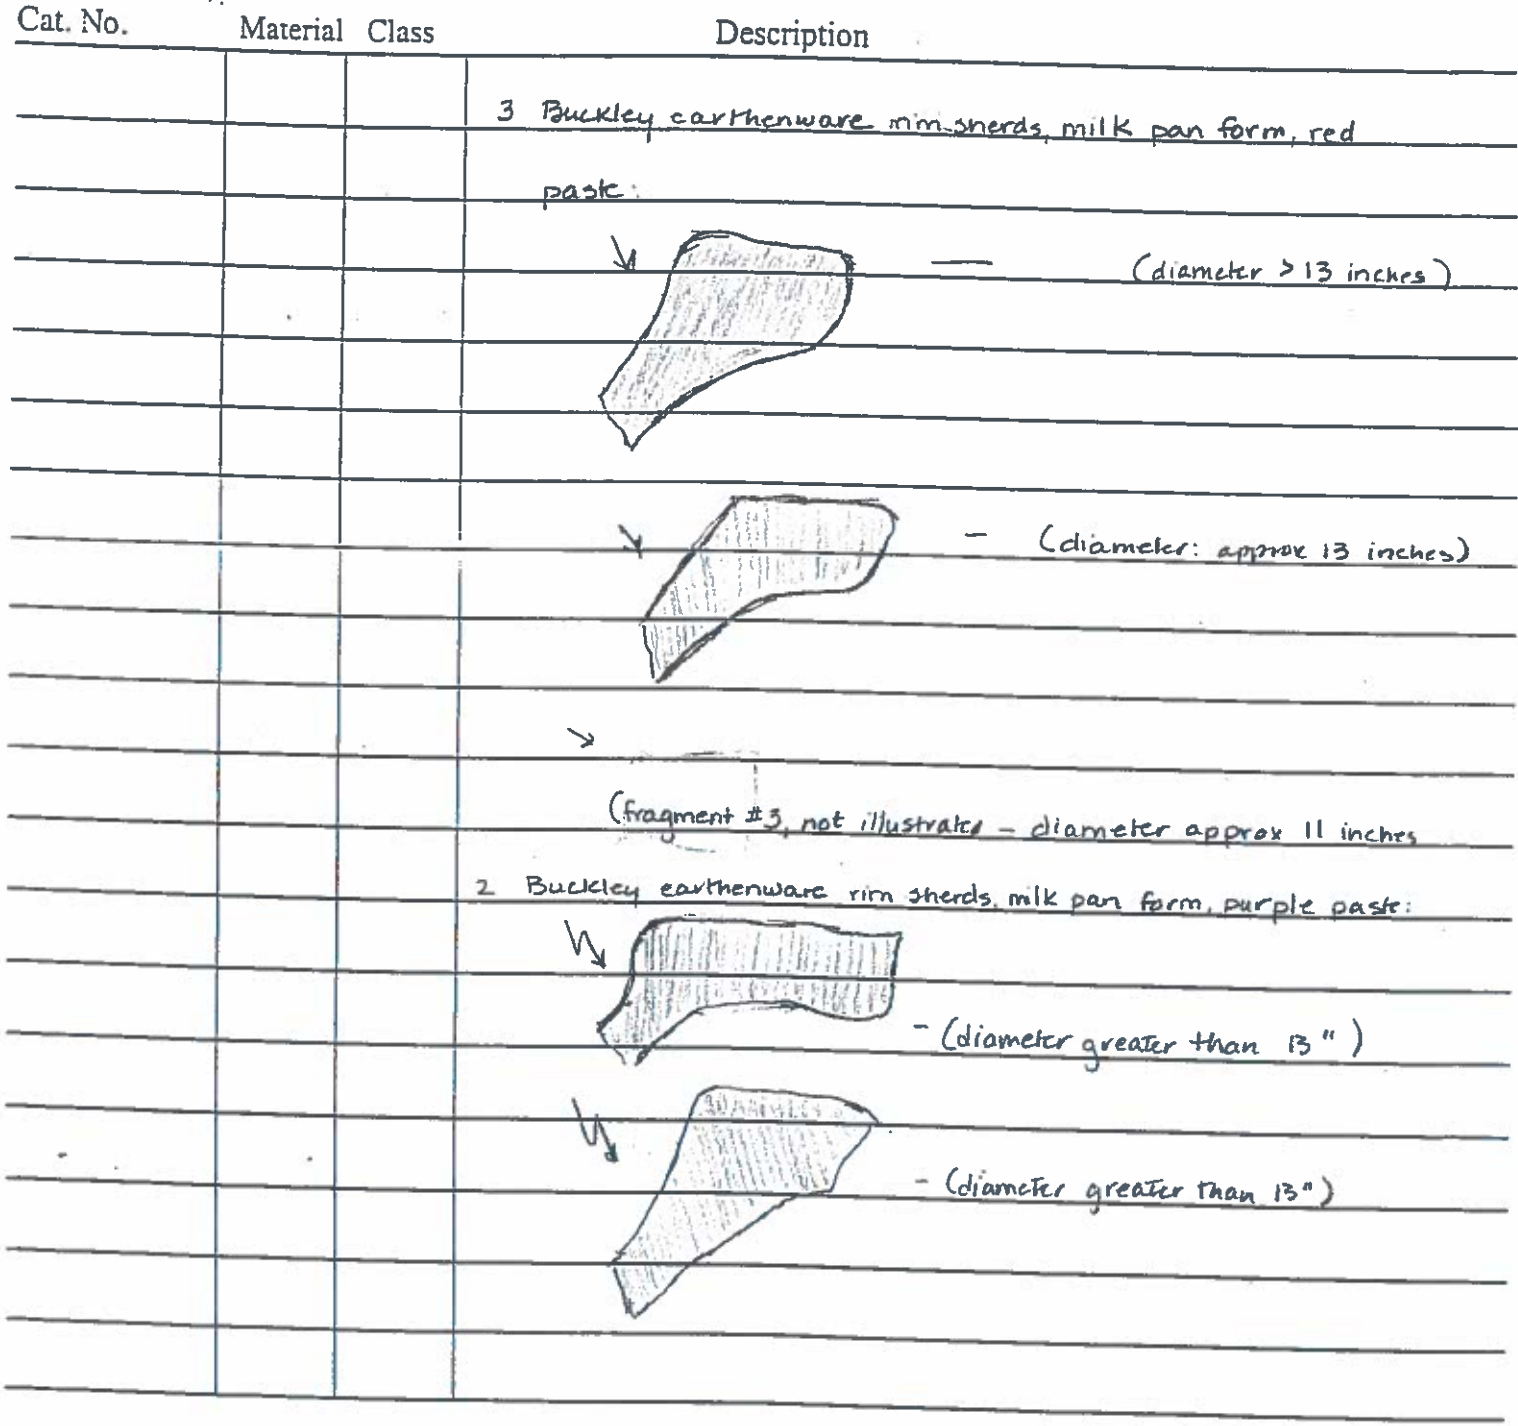 Cat. No. Material Class Description
3 Buckley earthenware rim sherds, milk pan form, red
paste:
— (diameter > 13 inches)
- (diameter: approx 13 inches)
(fragment #3, not illustrated - diameter approx 11 inches
2 Buckley earthenware rim sherds, milk pan form, purple paste:
- (diameter greater than 13")
- (diameter greater than 13")